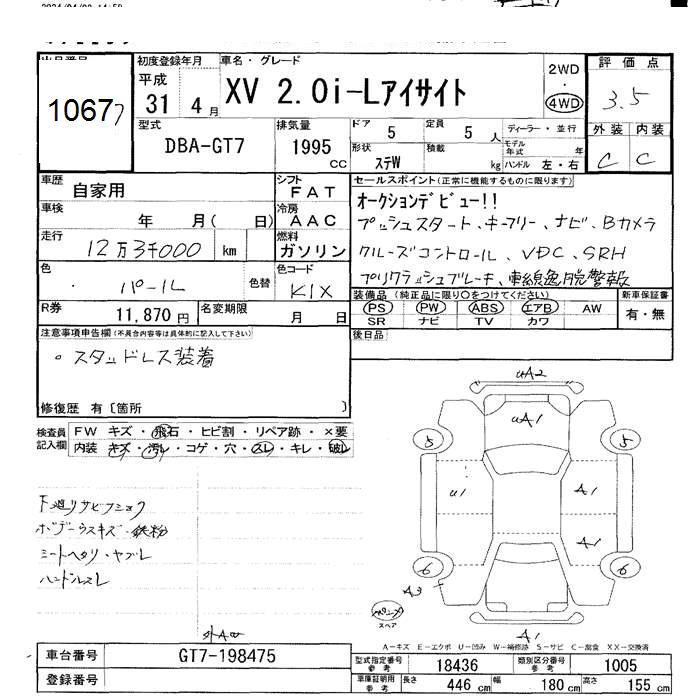 初度登録年月
車名・グレード
評価点
10677
平成
31 4月
XV 2.0i-Lアイサイト
2WD
・
4WD
3.5
型式
排気量
ドア 5
定員 5 人
ディーラー・並行
外装 内装
DBA-GT7
1995 CC
形状 ステW
積載 kg
モデル年式 年
ハンドル 左・右
C C
車歴 自家用
シフト FAT
セールスポイント(正常に機能するものに限ります)
車検 年 月( 日)
冷房 AAC
オークションデビュー!!
プッシュスタート、キーフリー、ナビ、Bカメラ
走行 12万3千000 km
燃料 ガソリン
クルーズコントロール、VDC、SRH
色 パール 色替
色コード K1X
プリクラッシュブレーキ、車線逸脱警報
R券 11,870円
名変期限 月 日
装備品(純正品に限り○をつけてください)
新車保証書
PS PW ABS エアB AW
SR ナビ TV カワ
有・無
注意事項申告欄(不具合内容等は具体的に記入して下さい)
後日品
。スタッドレス装着
修復歴 有〔箇所 〕
検査員記入欄
FW キズ・飛石・ヒビ割・リペア跡・×要
内装 キズ・汚レ・コゲ・穴・スレ・キレ・破レ
uA2
uA1
5 5
u1 A1
A1
6 6
A3
A1
下廻りサビフショク
ボデーウスキズ・鉄粉
シートヘタリ・ヤブレ
ハンドルスレ
スペア
A-キズ E-エクボ U-凹み W-補修跡 S-サビ C-腐食 XX-交換済
車台番号 GT7-198475
登録番号
型式指定番号 参考 18436
類別区分番号 参考 1005
車庫証明用 参考 長さ 446 cm 幅 180 cm 高さ 155 cm